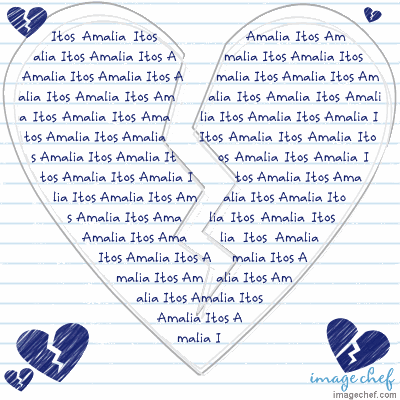 Itos Amalia Itos Amalia Itos Am
alia Itos Amalia Itos A malia Itos Amalia Itos
Amalia Itos Amalia Itos A malia Itos Amalia Itos Am
alia Itos Amalia Itos Am alia Itos Amalia Itos Amali
a Itos Amalia Itos Ama lia Itos Amalia Itos Amalia I
tos Amalia Itos Amalia Itos Amalia Itos Amalia Ito
s Amalia Itos Amalia It os Amalia Itos Amalia I
tos Amalia Itos Amalia I tos Amalia Itos Ama
lia Itos Amalia Itos Am alia Itos Amalia Ito
s Amalia Itos Ama lia Itos Amalia Itos
Amalia Itos Ama lia Itos Amalia
Itos Amalia Itos A malia Itos A
malia Itos Am alia Itos Am
alia Itos Amalia Itos
Amalia Itos A
malia I
image chef
imagechef.com